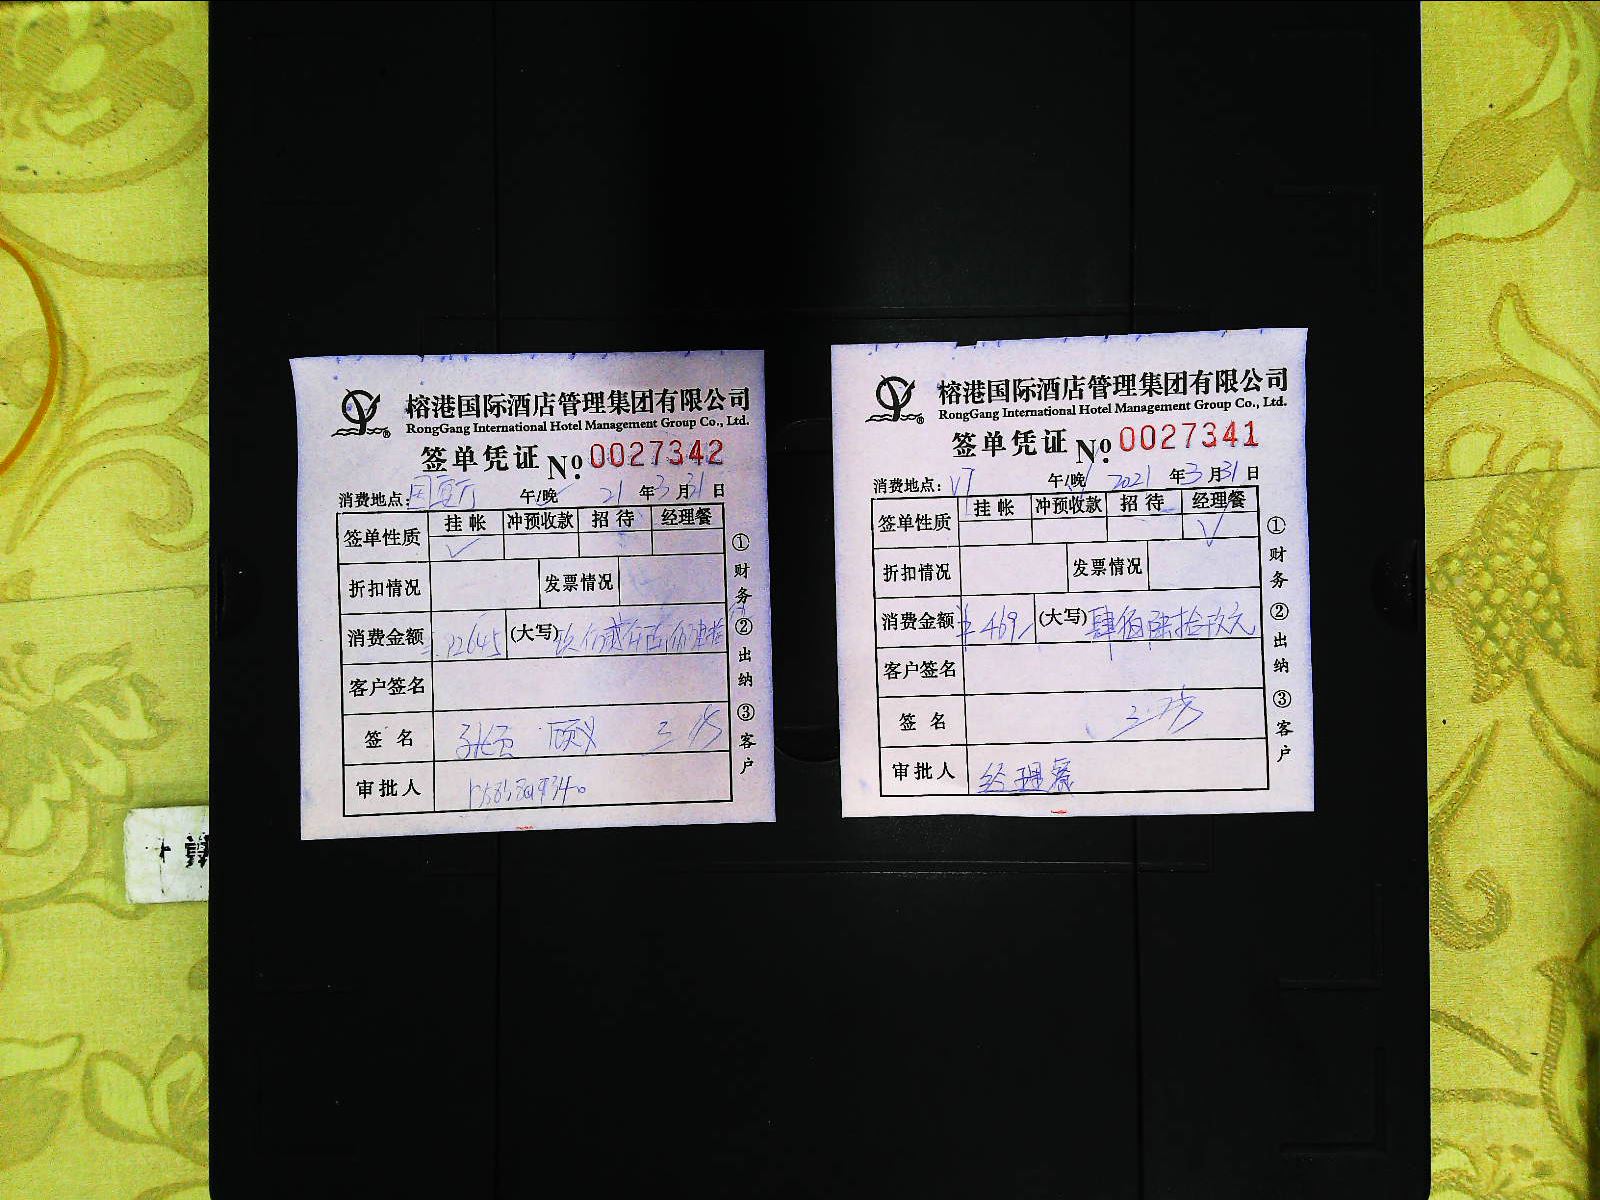 榕港国际酒店管理集团有限公司
RongGang International Hotel Management Group Co., Ltd.
签单凭证 No. 0027342
消费地点: 国宴厅 午/晚 21年3月31日
签单性质 挂帐 冲预收款 招待 经理餐
✓
折扣情况 发票情况
消费金额 12645 (大写)
客户签名
签名
审批人
①财务②出纳③客户
榕港国际酒店管理集团有限公司
RongGang International Hotel Management Group Co., Ltd.
签单凭证 No. 0027341
消费地点: V7 午/晚 2021年3月31日
签单性质 挂帐 冲预收款 招待 经理餐
✓
折扣情况 发票情况
消费金额 ¥469/ (大写) 肆佰陆拾玖元
客户签名
签名
审批人 经理餐
①财务②出纳③客户